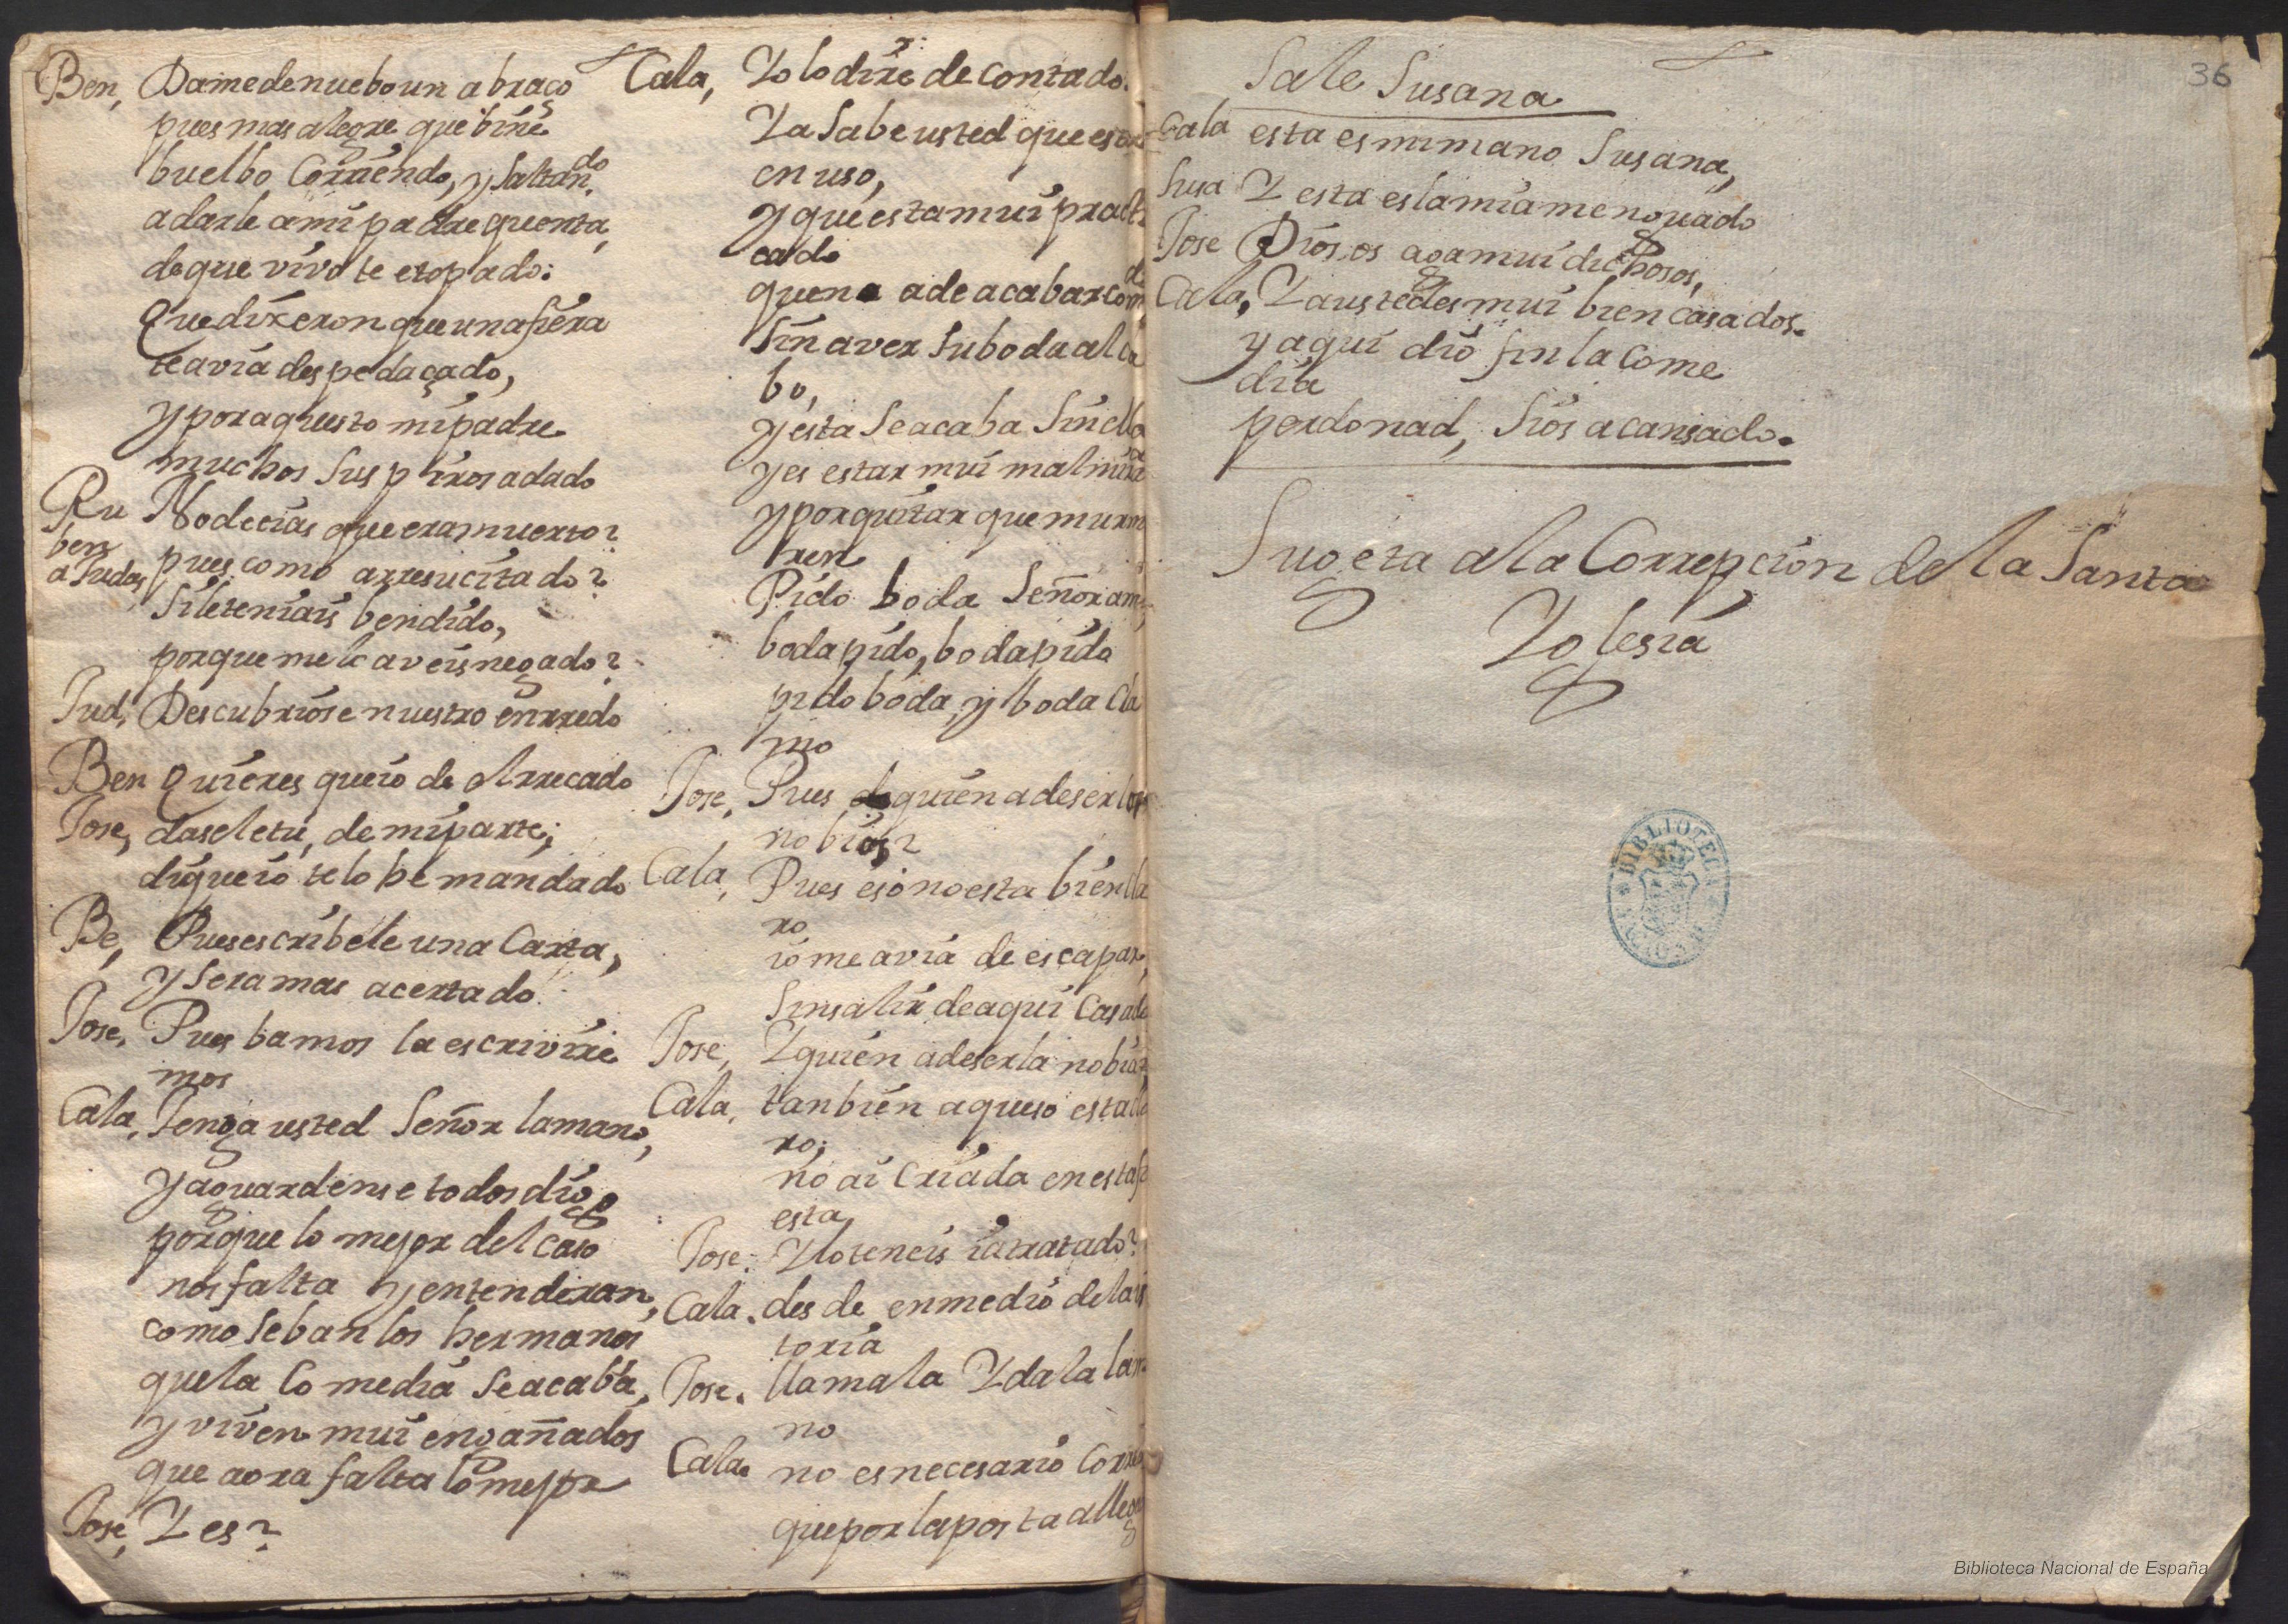 Ben, Dame de nuebo un abraço
pues mas alegre que vine
buelbo, Corriendo, y saltando
a darle a mi padre quenta,
de que vivo te e topado:
Que dixeron que una fiera
te avia despedaçado,
y por aquesto mi padre
muchos suspiros a dado
Ru Nodecias que era muerto?
ben a Judas, pues como a rresucitado?
si le teniais bendido,
porque me le aveis negado?
Jud, Descubriose nuestro enrredo
Ben Quieres que io de el rrecado
Jose, dasele tu, de mi parte;
di que io te lo he mandado
Be, Pues escribele una Carta,
y sera mas acertado.
Jose, Pues bamos la escrivire
mos
Cala, Tenga usted Señor la mano,
y aguardense todos digo
porque lo mejor del caso
nos falta y entenderan,
como se ban los hermanos
que la Comedia se acaba,
y viven mui engañados
que aora falta lo mejor
Jose, Y es?
Cala, Yo lo dire de contado.
Ya sabe usted que esta
en uso,
y que esta mui practi
cado
que no a de acabar com
sin aver su boda al ca
bo,
y esta se acaba sin ella
y es estar mui mal mira
y por quitar que murm
ren
Pido boda Señor am
boda pido, boda pido
pido boda, y boda Cla
mo
Jose, Pues quien a de ser los
nobios?
Cala, Pues eso no esta bien cla
ro
io me avia de escapar,
sin salir de aqui Casado
Jose, Y quien a de ser la nobia?
Cala, tanbien aqueso esta cla
ro;
no ai Criada en esta fi
esta
Jose: Y lo teneis ia tratado?
Cala. desde en medio de la is
toria
Jose. llamala Y dala la ma
no
Cala. no es necesario Correo
que por la posta a llega
36
Sale Susana
Cala esta es mi mano Susana,
Susa Y esta es la mia menguado
Jose Dios os aga mui dichosos,
Cala, Y a ustedes mui bien casados.
y aqui dio fin la Come
dia
perdonad, si os a cansado.
Sugeta a la Correpcion de la Santa
Yglesia
BIBLIOTECA
Biblioteca Nacional de España